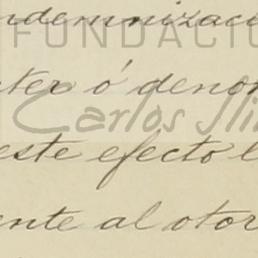 ndemnizaci
FUNDACIÓ
cter ó denom
Carlos Sli
este efecto l
ente al otor